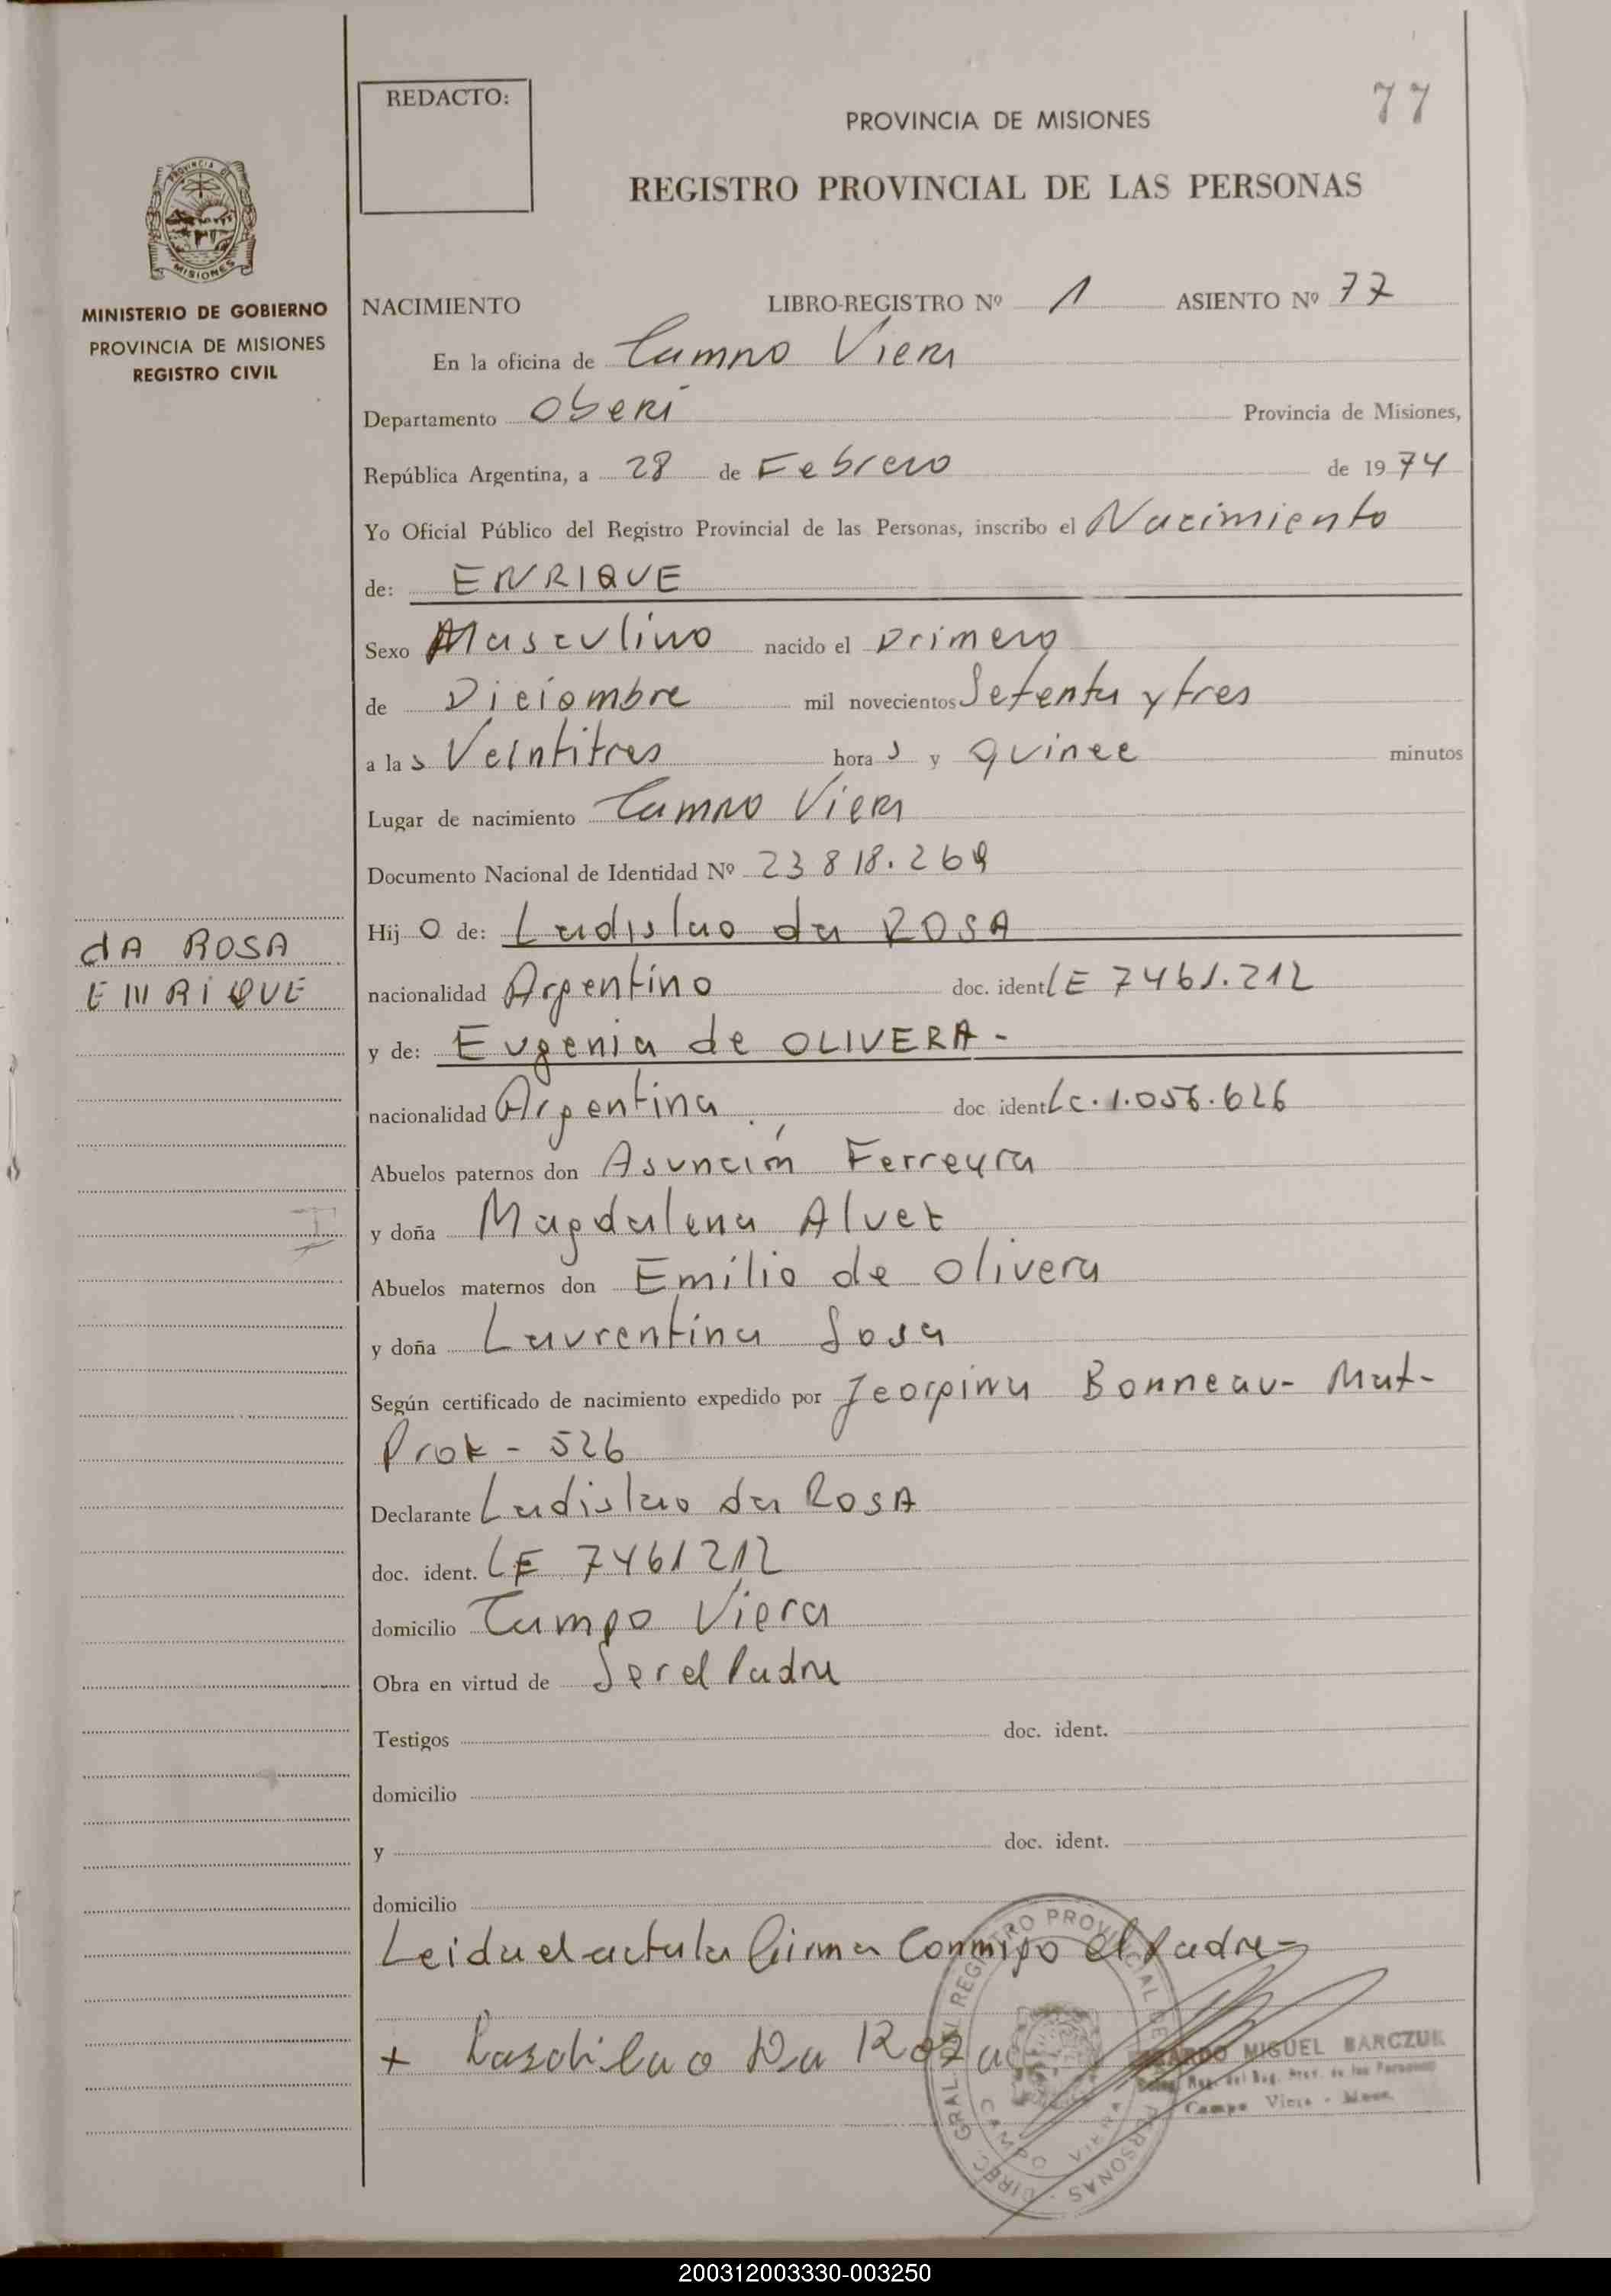 REDACTO:
77
PROVINCIA DE MISIONES
REGISTRO PROVINCIAL DE LAS PERSONAS
PROVINCIA DE
MISIONES
MINISTERIO DE GOBIERNO
PROVINCIA DE MISIONES
REGISTRO CIVIL
NACIMIENTO LIBRO-REGISTRO Nº 1 ASIENTO Nº 77
En la oficina de Campo Viera
Departamento Oberá Provincia de Misiones,
República Argentina, a 28 de Febrero de 1974
Yo Oficial Público del Registro Provincial de las Personas, inscribo el Nacimiento
de: ENRIQUE
Sexo Masculino nacido el primero
de Diciembre mil novecientos Setenta y tres
a las Veintitres horas y quince minutos
Lugar de nacimiento Campo Viera
Documento Nacional de Identidad Nº 23818.269
dA ROSA
ENRIQUE
Hijo de: Ladislao da ROSA
nacionalidad Argentino doc. ident LE 7461.212
y de: Eugenia de OLIVERA -
nacionalidad Argentina doc ident Lc. 1.056.626
Abuelos paternos don Asunción Ferreyra
y doña Magdalena Alvez
Abuelos maternos don Emilio de Olivera
y doña Laurentina Sosa
Según certificado de nacimiento expedido por Jeorgina Bonneau- Mat-
Prof - 526
Declarante Ladislao da ROSA
doc. ident. LE 7461212
domicilio Campo Viera
Obra en virtud de Ser el Padre
Testigos doc. ident.
domicilio
y doc. ident.
domicilio
Leida el acta la firma Conmigo el padre-
+ Lasdilao Da Roza
DIREC. GRAL. DEL REGISTRO PROVINCIAL DE PERSONAS
CAMPO
MIGUEL BARCZUK
del Reg. Prov. de las Personas
Campo Viera - Mnes.
200312003330-003250